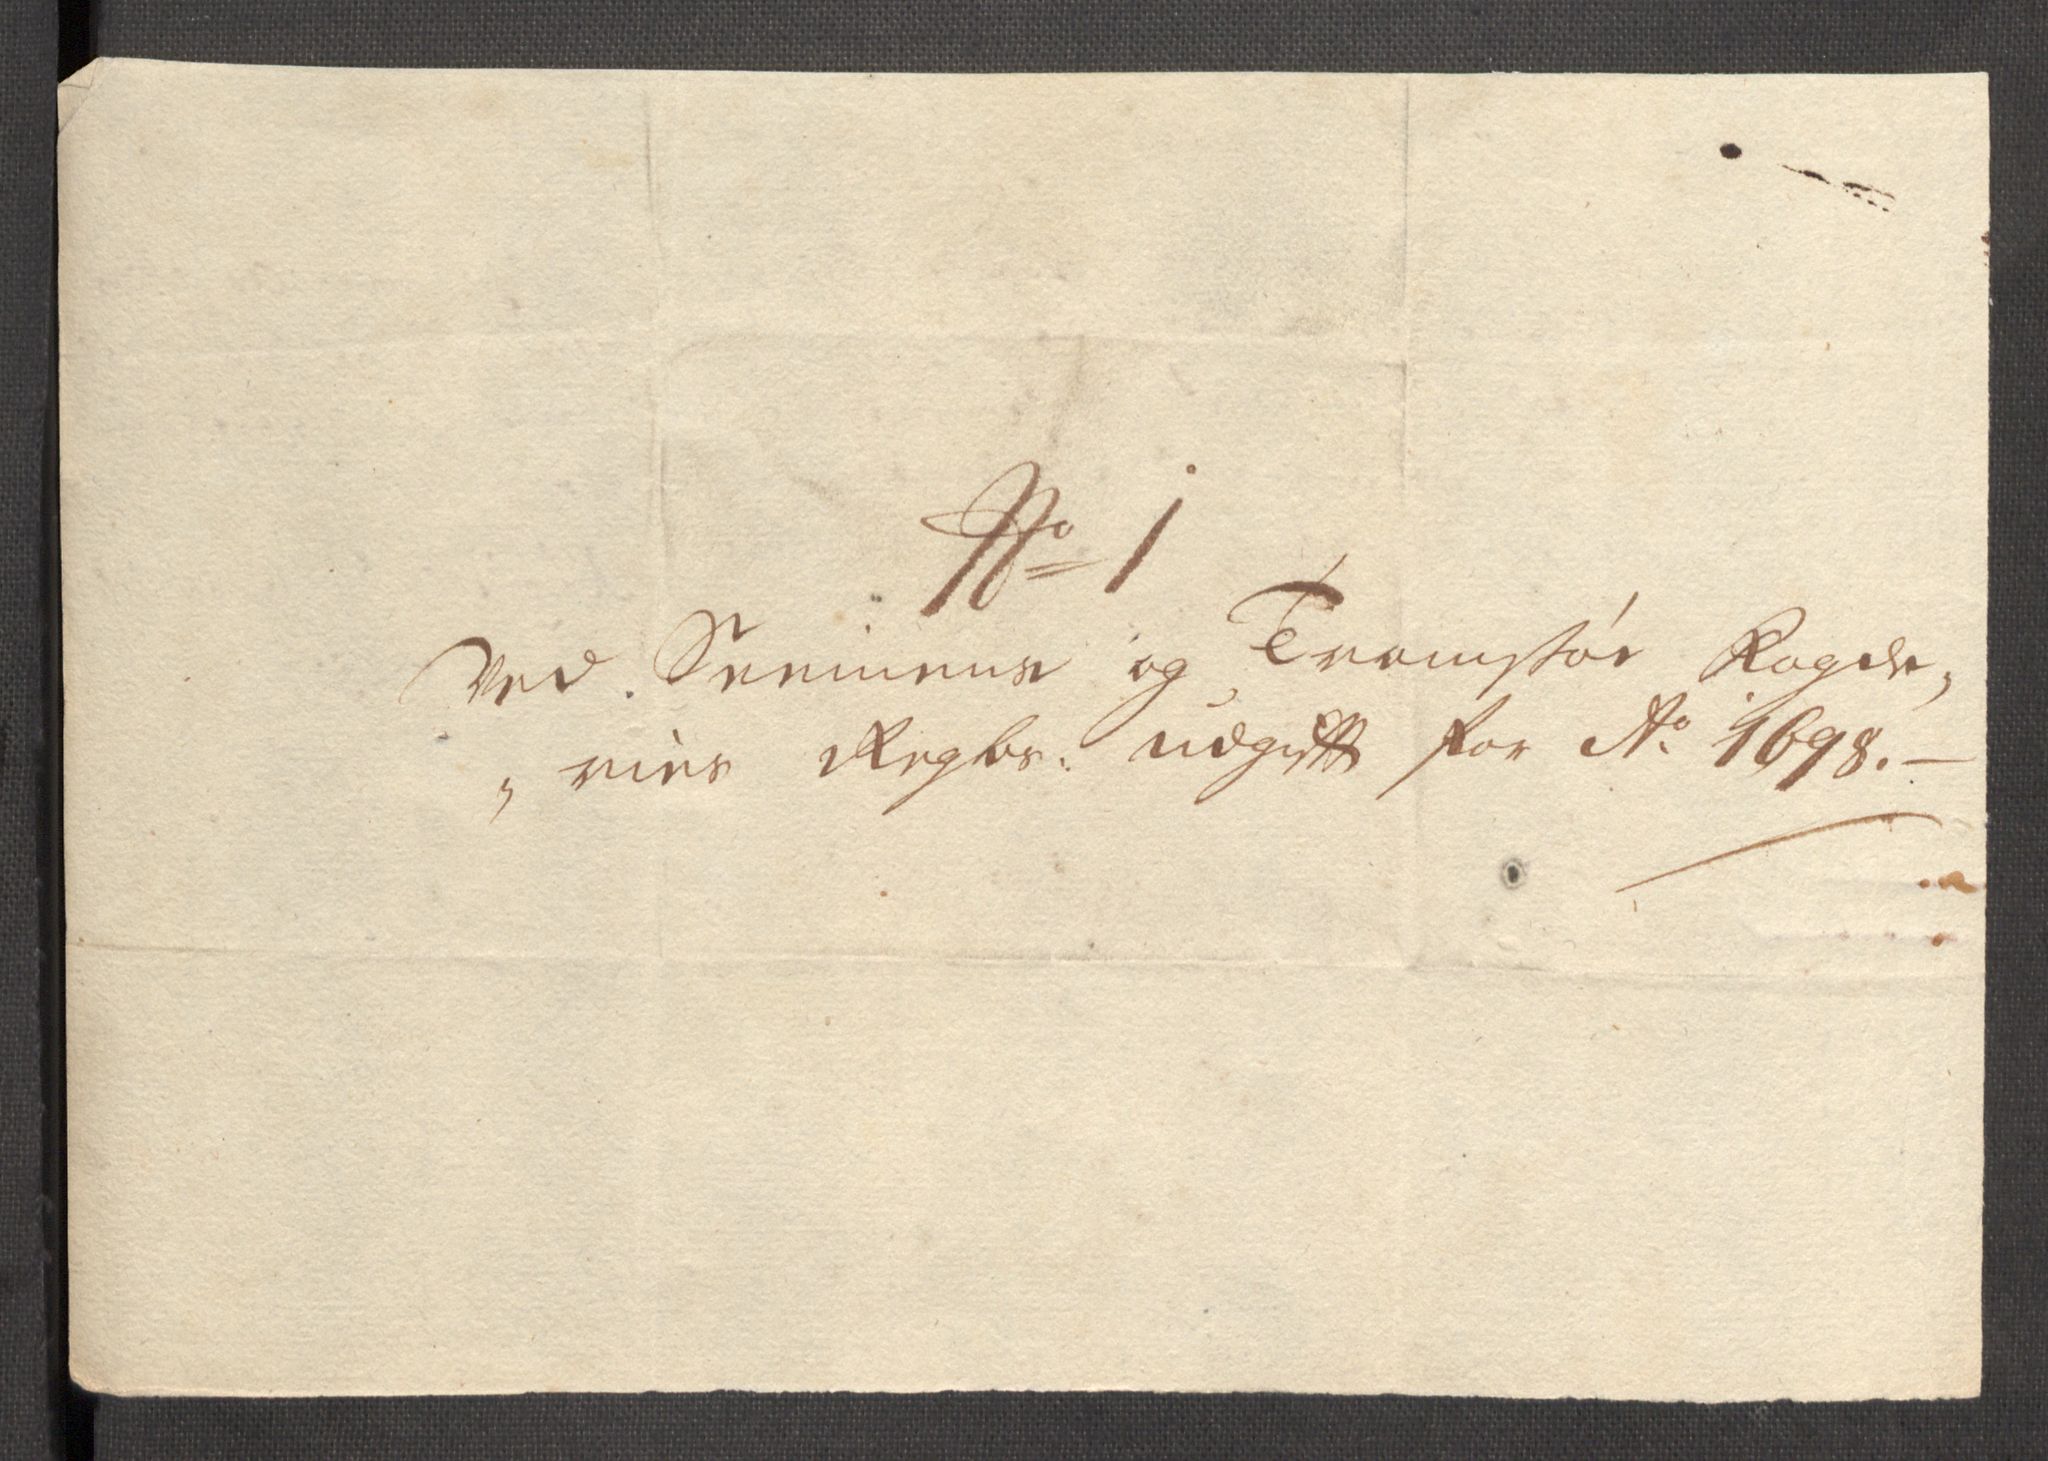 No 1
Ved Senniens og Tromsøe Fogde,
, ries Regbs: udgifft for Ao 1698. —